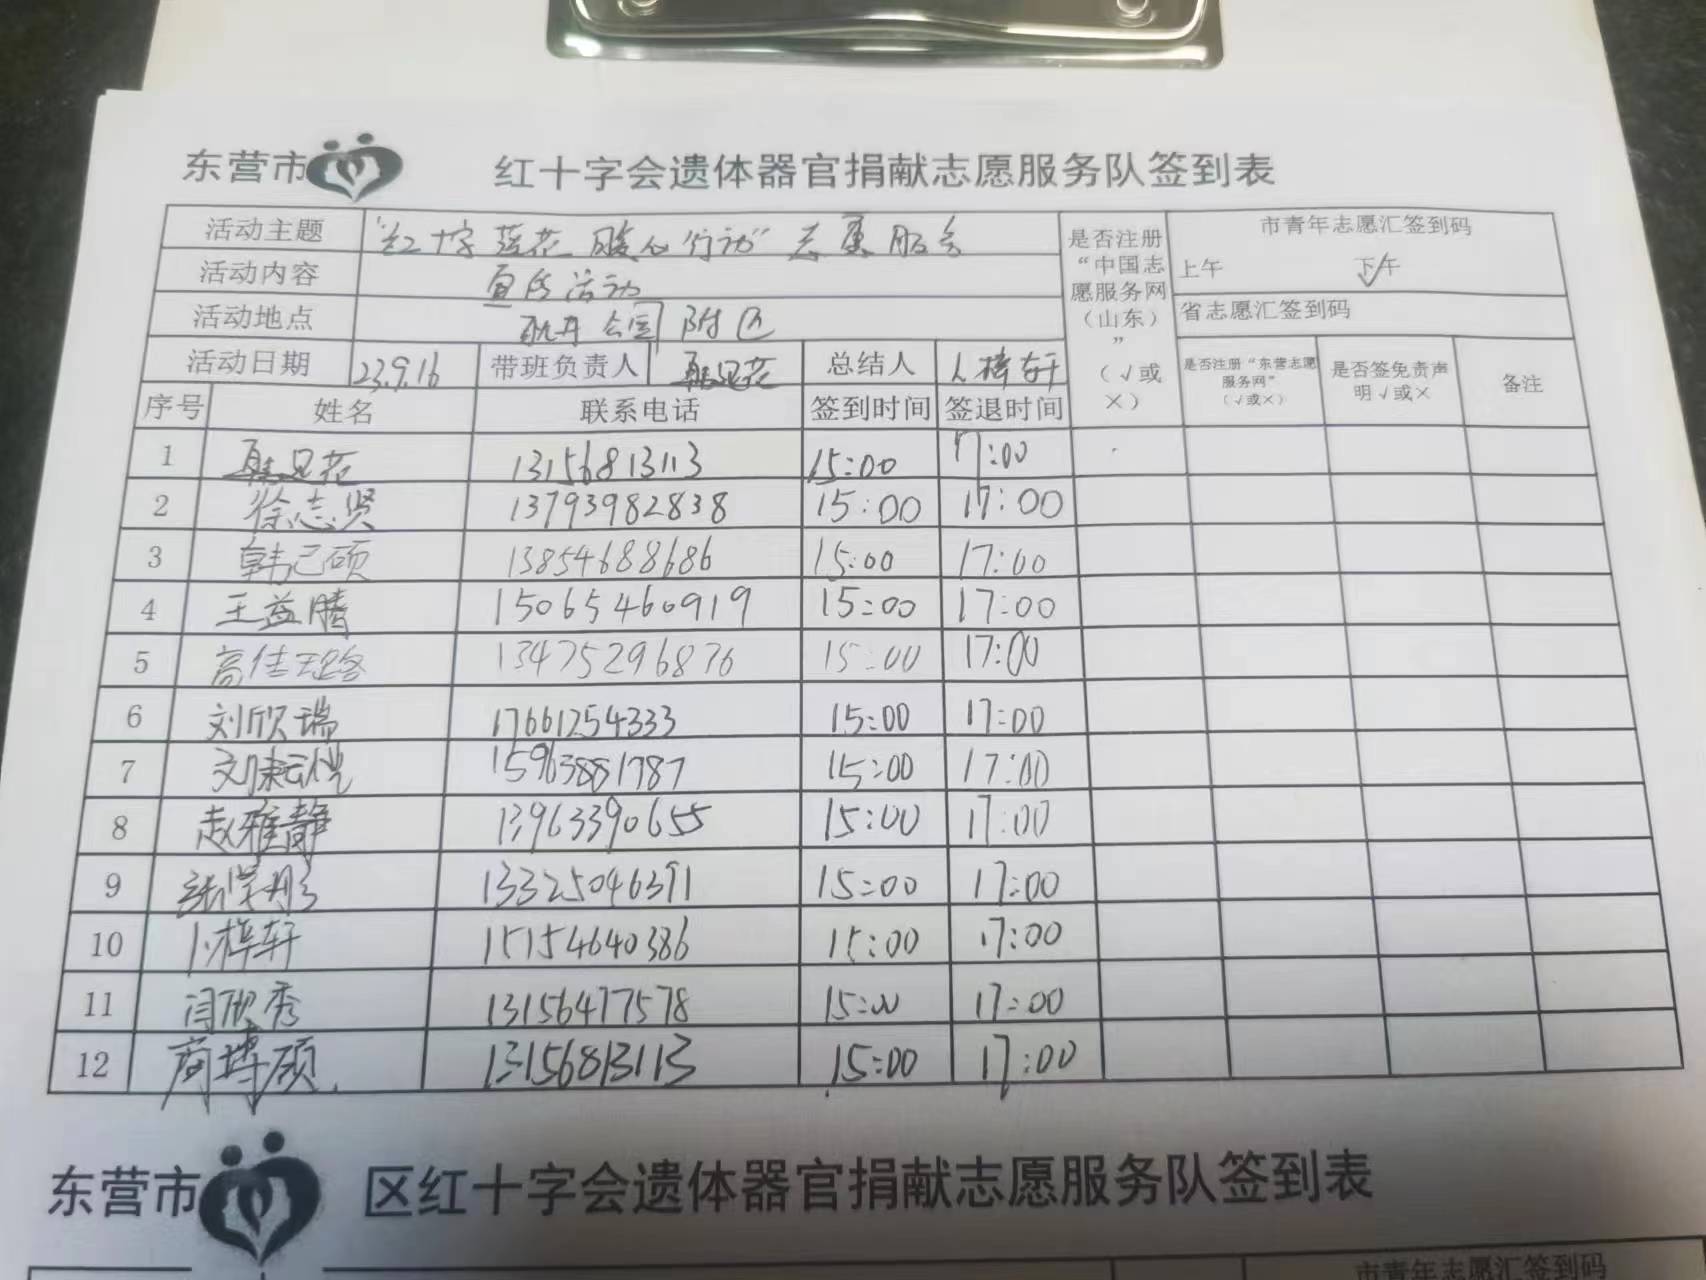 东营市 红十字会遗体器官捐献志愿服务队签到表
活动主题 "红十字莲花 暖心行动" 志愿服务
活动内容 宣传活动
活动地点 公园 附近
是否注册“中国志愿服务网（山东）”（√或×）
市青年志愿汇签到码
上午 下午 √
省志愿汇签到码
活动日期 23.9.16 带班负责人 总结人 卜梓轩
是否注册“东营志愿服务网”（√或×） 是否签免责声明√或× 备注
序号 姓名 联系电话 签到时间 签退时间
1 13156813113 15:00 17:00
2 徐志贤 13793982838 15:00 17:00
3 韩己硕 13854688686 15:00 17:00
4 王益腾 15065460919 15:00 17:00
5 高佳璐 13475296876 15:00 17:00
6 刘欣瑞 17661254333 15:00 17:00
7 15963881787 15:00 17:00
8 赵雅静 13963390655 15:00 17:00
9 13325046391 15:00 17:00
10 卜梓轩 15154640386 15:00 17:00
11 闫欣秀 13156477578 15:00 17:00
12 商博硕 13156813113 15:00 17:00
东营市 区红十字会遗体器官捐献志愿服务队签到表
市青年志愿汇签到码